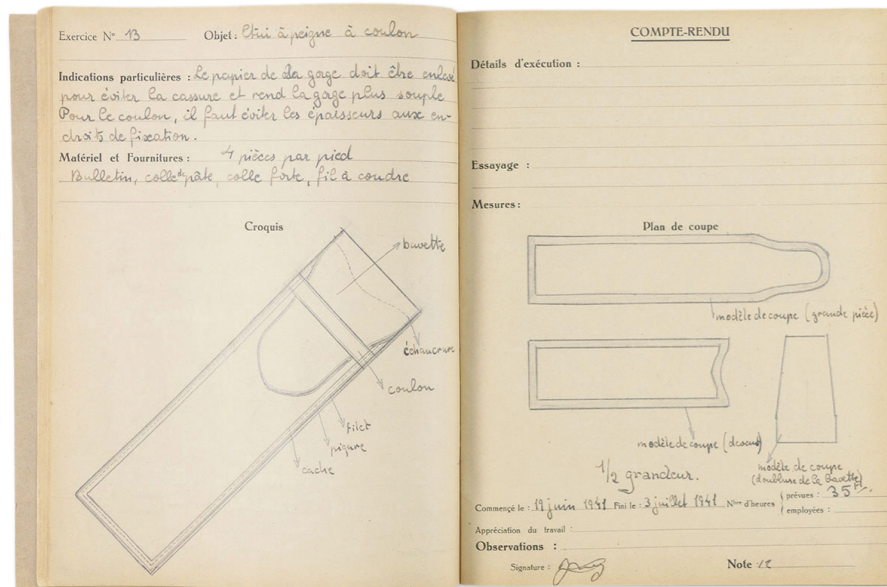 Exercice N° 13 Objet : Etui à peigne à coulon
Indications particulières : Le papier de la gorge doit être
pour éviter la cassure et rend la gorge plus souple
Pour le coulon, il faut éviter les épaisseurs aux en-
droits de fixation.
Matériel et Fournitures : 4 pièces par pied
Bulletin, colle de pâte, colle forte, fil à coudre
Croquis
bavette
échancrure
coulon
filet
piqure
cache
COMPTE-RENDU
Détails d'exécution :
Essayage :
Mesures :
Plan de coupe
modèle de coupe (grande pièce)
modèle de coupe (dessus)
1/2 grandeur.
modèle de coupe
(doublure de la bavette)
Commencé le : 19 juin 1941 Fini le : 3 juillet 1941 Nbre d'heures
prévues : 35
employées :
Appréciation du travail :
Observations :
Signature :
Note : 12